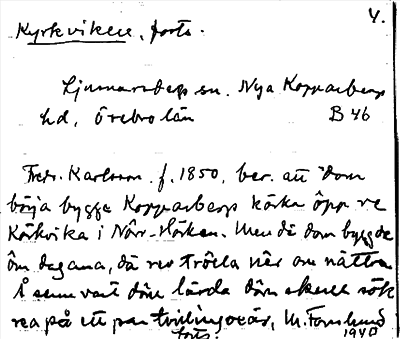 4.
Kyrkviken, forts.
Ljusnarsbergs sn. Nya Kopparbergs
hd, Örebro län B 46
Fredr. Karlsson f. 1850, ber. att "dom
börja bygge Kopparbergs körka öpp ve
Körkvika i Nörr-Hörken. Men dä dom byggde
öm dagana, dä rev trölla ner om nättra
Å sum vart dän lärda dän skulle sök
rea på ett par tvillingoxar, M. Forslund
forts. 1940